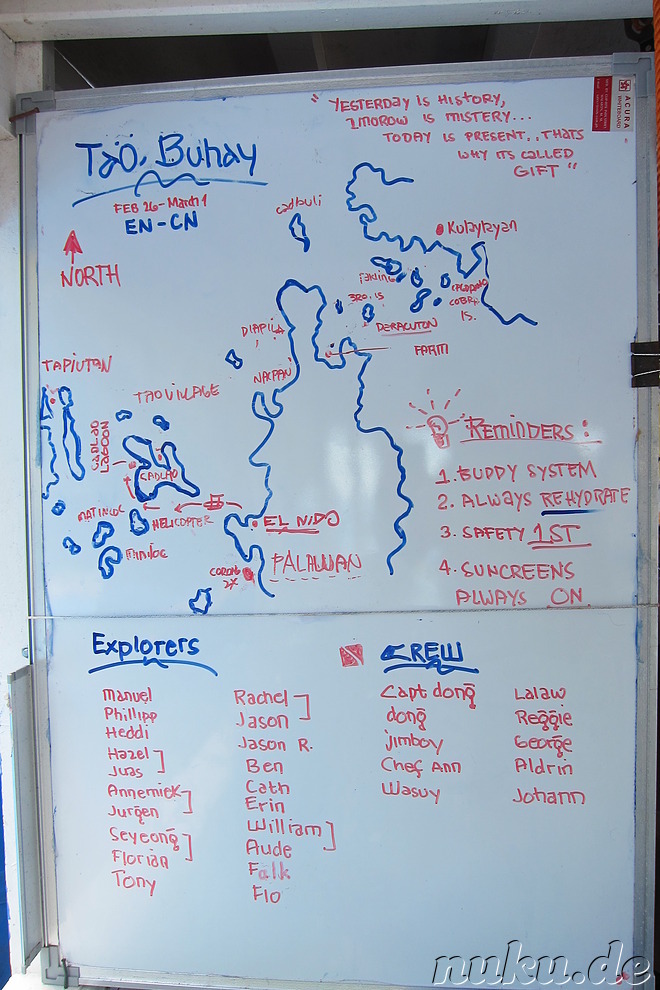 " YESTERDAY IS HISTORY,
2MOROW IS MISTERY...
TODAY IS PRESENT.. THATS
WHY ITS CALLED
GIFT "
ACURA
WHITEBOARD
TAO. BUHAY
FEB 26 - March 1
EN - CN
NORTH
cadbuli
Kulaylayan
3RO. IS
COBRA
IS.
DERACUTON
FARM
DIAPILA
NACPAN
TAPIUTAN
TAO VILLAGE
CADLAO
LAGOON
CADLAO
MATINLOC
HELICOPTER
miniloc
EL NIDO
CORONG
2X
PALAWAN
REMINDERS:
1. BUDDY SYSTEM
2. ALWAYS REHYDRATE
3. SAFETY 1ST
4. SUNCREENS
ALWAYS ON.
Explorers
manuel
Phillipp
Heddi
Hazel
Juas
Annemiek
Jurgen
Seyeong
Florian
Tony
Rachel
Jason
Jason R.
Ben
Cath
Erin
William
Aude
Falk
Flo
CREW
Capt dong
dong
jimboy
Chef Ann
Wasuy
Lalaw
Reggie
George
Aldrin
Johann
nuku.de